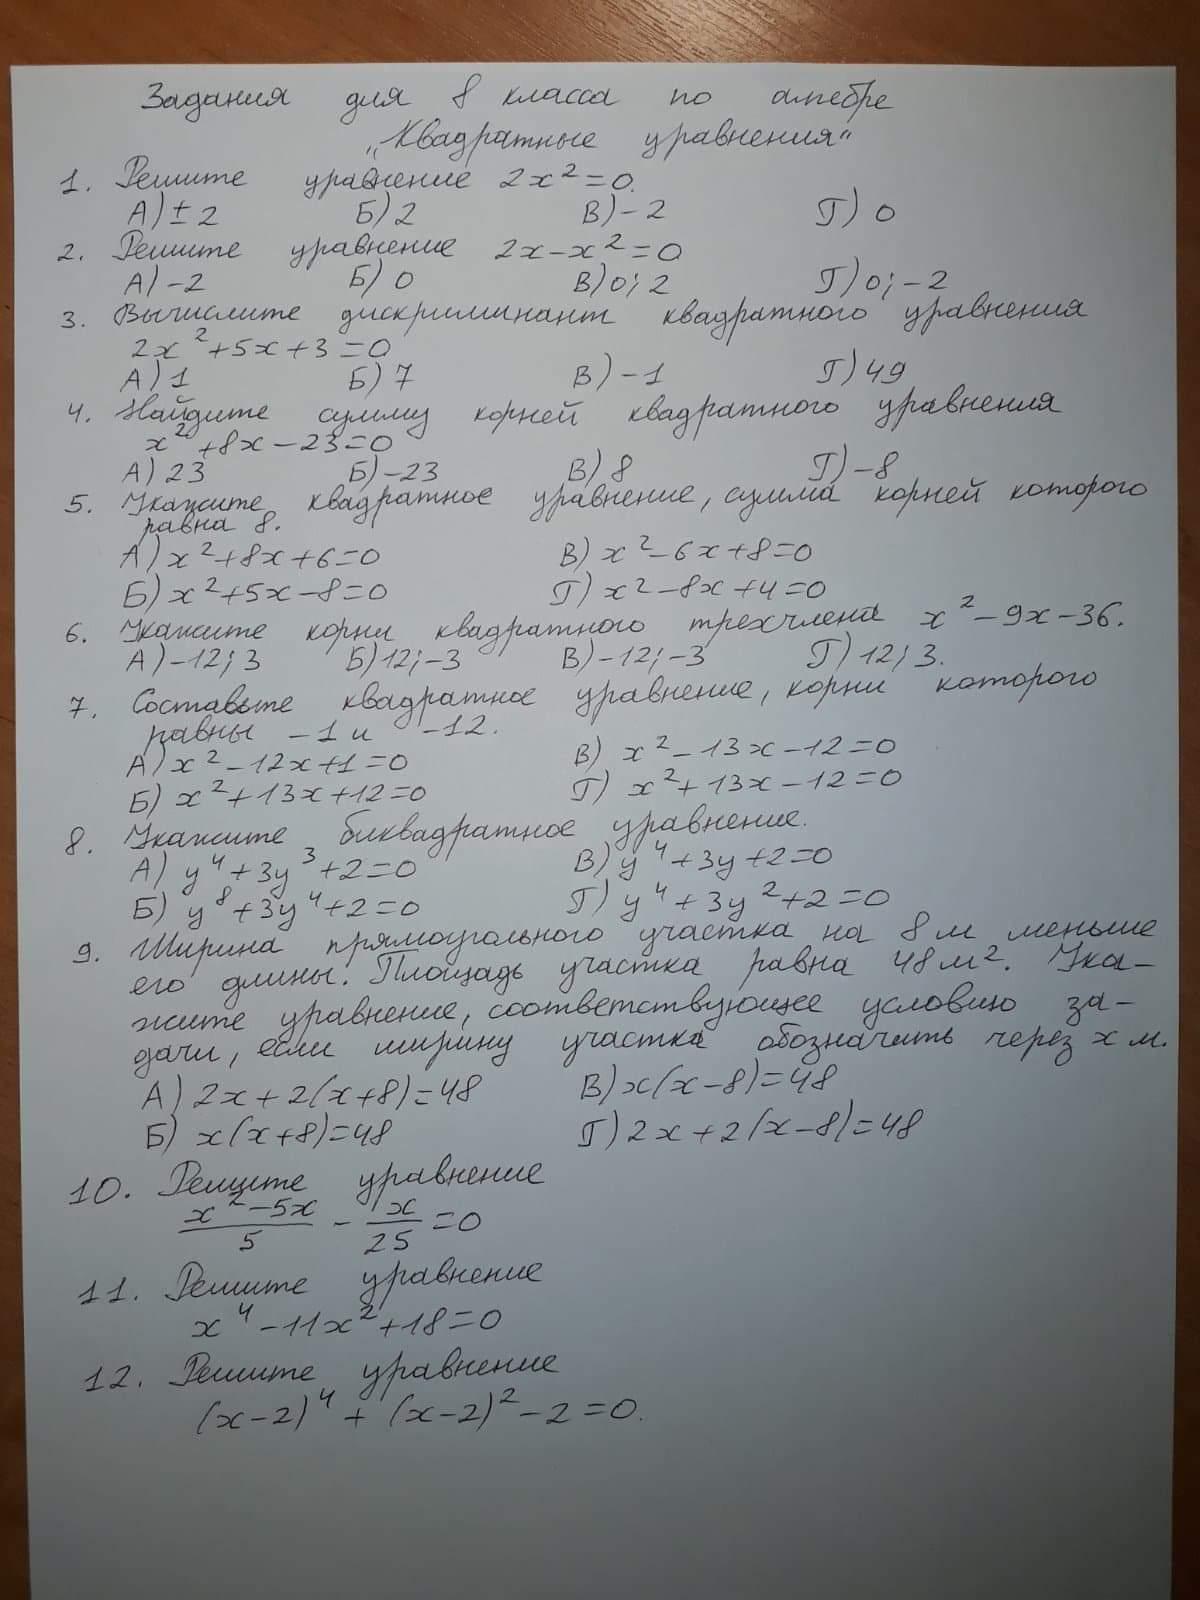 Задания для 8 класса по алгебре
„Квадратные уравнения“
1. Решите уравнение 2x²=0.
А) ±2 Б) 2 В) -2 Г) 0
2. Решите уравнение 2x-x²=0
А) -2 Б) 0 В) 0; 2 Г) 0; -2
3. Вычислите дискриминант квадратного уравнения
2x²+5x+3=0
А) 1 Б) 7 В) -1 Г) 49
4. Найдите сумму корней квадратного уравнения
x²+8x-23=0
А) 23 Б) -23 В) 8 Г) -8
5. Укажите квадратное уравнение, сумма корней которого
равна 8.
А) x²+8x+6=0 В) x²-6x+8=0
Б) x²+5x-8=0 Г) x²-8x+4=0
6. Укажите корни квадратного трехчлена x²-9x-36.
А) -12; 3 Б) 12; -3 В) -12; -3 Г) 12; 3.
7. Составьте квадратное уравнение, корни которого
равны -1 и -12.
А) x²-12x+1=0 В) x²-13x-12=0
Б) x²+13x+12=0 Г) x²+13x-12=0
8. Укажите биквадратное уравнение.
А) y⁴+3y³+2=0 В) y⁴+3y+2=0
Б) y⁸+3y⁴+2=0 Г) y⁴+3y²+2=0
9. Ширина прямоугольного участка на 8 м меньше
его длины. Площадь участка равна 48 м². Ука-
жите уравнение, соответствующее условию за-
дачи, если ширину участка обозначить через x м.
А) 2x+2(x+8)=48 В) x(x-8)=48
Б) x(x+8)=48 Г) 2x+2(x-8)=48
10. Решите уравнение
(x²-5x)/5 - x/25 =0
11. Решите уравнение
x⁴-11x²+18=0
12. Решите уравнение
(x-2)⁴+(x-2)²-2=0.